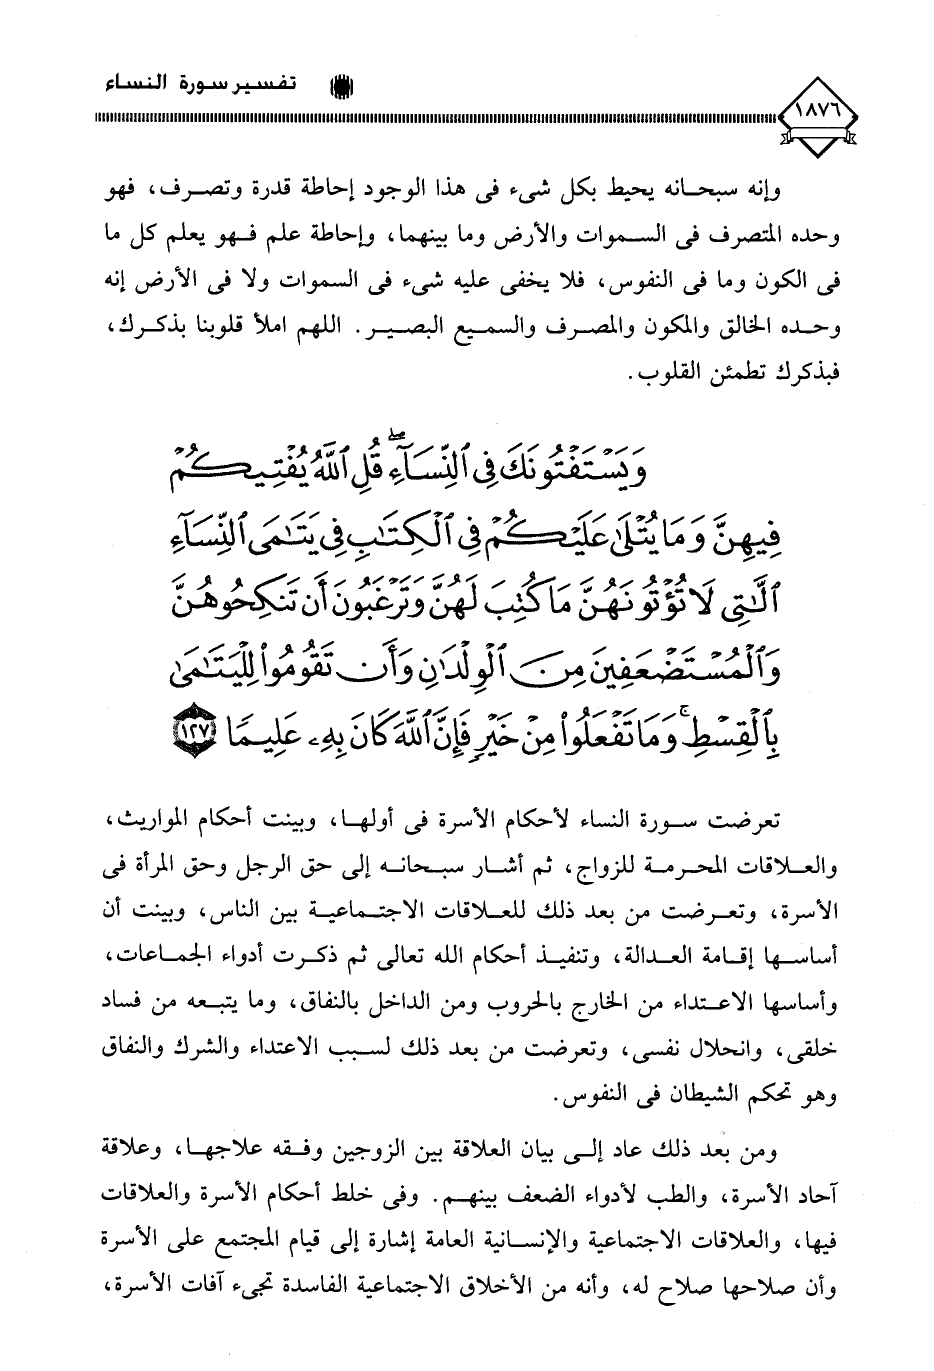 تفسير سورة النساء
١٨٧٦
وإنه سبحانه يحيط بكل شىء فى هذا الوجود إحاطة قدرة وتصرف، فهو
وحده المتصرف فى السموات والأرض وما بينهما، وإحاطة علم فهو يعلم كل ما
فى الكون وما فى النفوس، فلا يخفى عليه شىء فى السموات ولا فى الأرض إنه
وحده الخالق والمكون والمصرف والسميع البصير. اللهم املأ قلوبنا بذكرك،
فبذكرك تطمئن القلوب.
وَيَسْتَفْتُونَكَ فِى ٱلنِّسَآءِ ۖ قُلِ ٱللَّهُ يُفْتِيكُمْ
فِيهِنَّ وَمَا يُتْلَىٰ عَلَيْكُمْ فِى ٱلْكِتَٰبِ فِى يَتَٰمَى ٱلنِّسَآءِ
ٱلَّٰتِى لَا تُؤْتُونَهُنَّ مَا كُتِبَ لَهُنَّ وَتَرْغَبُونَ أَن تَنكِحُوهُنَّ
وَٱلْمُسْتَضْعَفِينَ مِنَ ٱلْوِلْدَٰنِ وَأَن تَقُومُوا۟ لِلْيَتَٰمَىٰ
بِٱلْقِسْطِ ۚ وَمَا تَفْعَلُوا۟ مِنْ خَيْرٍ فَإِنَّ ٱللَّهَ كَانَ بِهِۦ عَلِيمًا ١٢٧
تعرضت سورة النساء لأحكام الأسرة فى أولها، وبينت أحكام المواريث،
والعلاقات المحرمة للزواج، ثم أشار سبحانه إلى حق الرجل وحق المرأة فى
الأسرة، وتعرضت من بعد ذلك للعلاقات الاجتماعية بين الناس، وبينت أن
أساسها إقامة العدالة، وتنفيذ أحكام الله تعالى ثم ذكرت أدواء الجماعات،
وأساسها الاعتداء من الخارج بالحروب ومن الداخل بالنفاق، وما يتبعه من فساد
خلقى، وانحلال نفسى، وتعرضت من بعد ذلك لسبب الاعتداء والشرك والنفاق
وهو تحكم الشيطان فى النفوس.
ومن بعد ذلك عاد إلى بيان العلاقة بين الزوجين وفقه علاجها، وعلاقة
آحاد الأسرة، والطب لأدواء الضعف بينهم. وفى خلط أحكام الأسرة والعلاقات
فيها، والعلاقات الاجتماعية والإنسانية العامة إشارة إلى قيام المجتمع على الأسرة
وأن صلاحها صلاح له، وأنه من الأخلاق الاجتماعية الفاسدة تجىء آفات الأسرة،